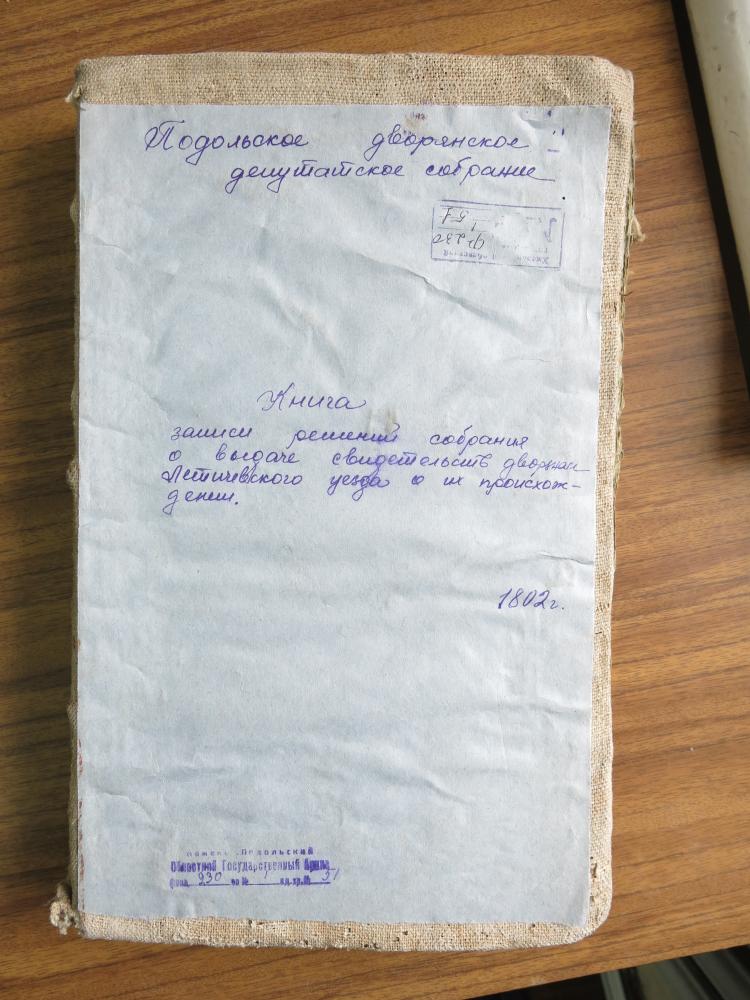 Подольское дворянское
депутатское собрание
Ф 230
1
57
Книга
записи решений собрания
о выдаче свидетельств дворянам
Летичевского уезда о их происхож-
дении.
1802г.
Каменец-Подольский
Областной Государственный Архив
фонд 230 оп № 1 ед. хр. №